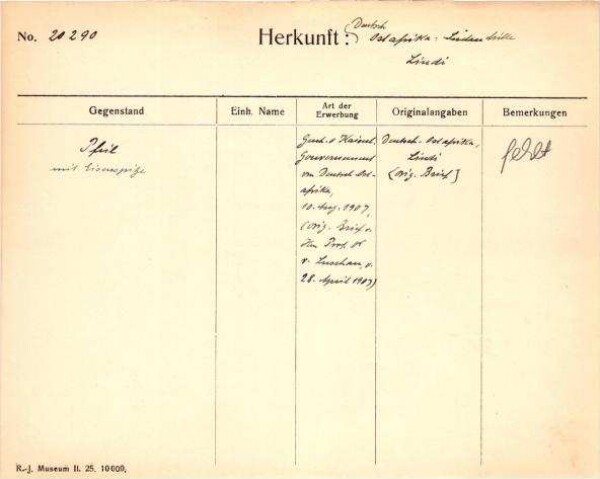 No. 20290
Herkunft: Deutsch
Ostafrika:
Lindi
Gegenstand
Einh. Name
Art der
Erwerbung
Originalangaben
Bemerkungen
Pfeil
mit Eisenspitze
Gesch. v Kaiserl.
Gouvernement
von Deutsch Ost-
afrika,
10. Aug. 1907,
(orig. Brief v.
Hrn Prof. Dr
v. Luschan, v.
28. April 1907)
Deutsch-Ostafrika,
Lindi
[orig. Brief]
fehlt
R.-J. Museum II. 25. 10000,